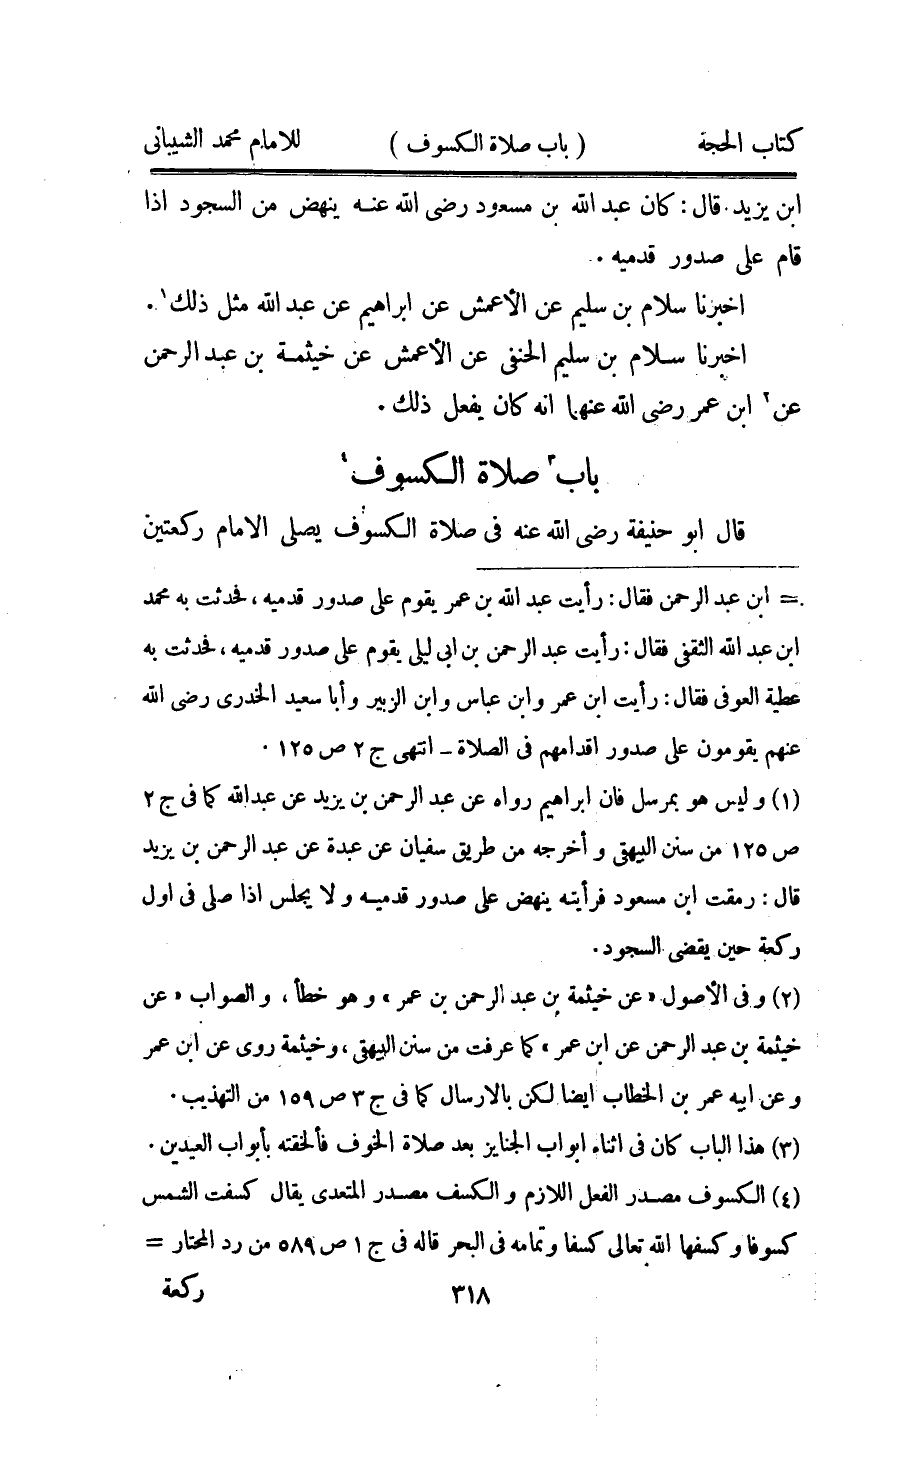 كتاب الحجة ( باب صلاة الكسوف ) للامام محمد الشيبانى
ابن يزيد قال : كان عبد الله بن مسعود رضى الله عنه ينهض من السجود اذا
قام على صدور قدميه .
اخبرنا سلام بن سليم عن الأعمش عن ابراهيم عن عبد الله مثل ذلك ١ .
اخبرنا سلام بن سليم الحنفى عن الأعمش عن خيثمة بن عبد الرحمن
عن ٢ ابن عمر رضى الله عنهما انه كان يفعل ذلك .
باب ٣ صلاة الكسوف ٤
قال ابو حنيفة رضى الله عنه فى صلاة الكسوف يصلى الامام ركعتين
= ابن عبد الرحمن فقال : رأيت عبد الله بن عمر يقوم على صدور قدميه ، فحدثت به محمد
ابن عبد الله الثقفى فقال : رأيت عبد الرحمن بن ابى ليلى يقوم على صدور قدميه ، فحدثت به
عطية العوفى فقال : رأيت ابن عمر وابن عباس وابن الزبير وأبا سعيد الخدرى رضى الله
عنهم يقومون على صدور اقدامهم فى الصلاة ـ انتهى ج ٢ ص ١٢٥ .
(١) وليس هو بمرسل فان ابراهيم رواه عن عبد الرحمن بن يزيد عن عبدالله كما فى ج ٢
ص ١٢٥ من سنن البيهقى و أخرجه من طريق سفيان عن عبدة عن عبد الرحمن بن يزيد
قال : رمقت ابن مسعود فرأيته ينهض على صدور قدميه و لا يجلس اذا صلى فى اول
ركعة حين يقضى السجود .
(٢) و فى الأصول « عن خيثمة بن عبد الرحمن بن عمر » و هو خطأ ، و الصواب « عن
خيثمة بن عبد الرحمن عن ابن عمر » كما عرفت من سنن البيهقى ، وخيثمة روى عن ابن عمر
و عن ابيه عمر بن الخطاب ايضا لكن بالارسال كما فى ج ٣ ص ١٥٩ من التهذيب .
(٣) هذا الباب كان فى اثناء ابواب الجنايز بعد صلاة الخوف فألحقته بأبواب العيدين .
(٤) الكسوف مصدر الفعل اللازم و الكسف مصدر المتعدى يقال كسفت الشمس
كسوفا و كسفها الله تعالى كسفا و تمامه فى البحر قاله فى ج ١ ص ٥٨٩ من رد المحتار =
٣١٨ ركعة